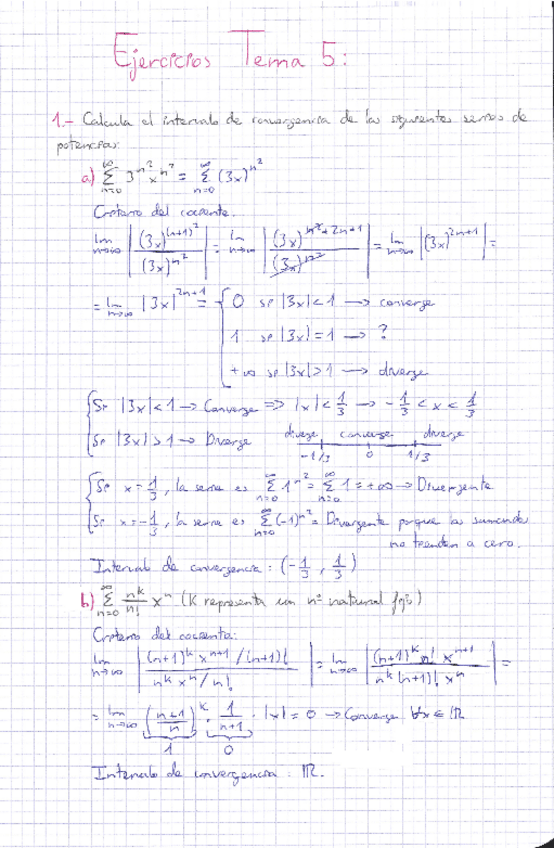 Ejercicios Tema 5:
1.- Calcula el intervalo de convergencia de las siguientes series de
potencias:
a) ∑_{n=0}^{∞} 3^{n²} x^{n²} = ∑_{n=0}^{∞} (3x)^{n²}
Criterio del cociente.
lim_{n→∞} |(3x)^{(n+1)²} / (3x)^{n²}| = lim_{n→∞} |(3x)^{n²+2n+1} / (3x)^{n²}| = lim_{n→∞} |(3x)^{2n+1}| =
= lim_{n→∞} |3x|^{2n+1} = { 0 si |3x|<1 → converge
1 si |3x|=1 → ?
+∞ si |3x|>1 → diverge
{ Si |3x|<1 → Converge ⇒ |x|<1/3 → -1/3 < x < 1/3
Si |3x|>1 → Diverge diverge converge diverge
-1/3 0 1/3
{ Si x=1/3, la serie es ∑_{n=0}^{∞} 1^{n²} = ∑_{n=0}^{∞} 1 = +∞ → Divergente
Si x=-1/3, la serie es ∑_{n=0}^{∞} (-1)^{n²} = Divergente porque los sumandos
no tienden a cero.
Intervalo de convergencia: (-1/3, 1/3)
b) ∑_{n=0}^{∞} n^k/n! x^n (K representa un nº natural fijo)
Criterio del cociente:
lim_{n→∞} |(n+1)^k x^{n+1} / (n+1)! / n^k x^n / n!| = lim_{n→∞} |(n+1)^k n! x^{n+1} / n^k (n+1)! x^n| =
= lim_{n→∞} ((n+1)/n)^k · 1/(n+1) · |x| = 0 → Converge ∀x ∈ ℝ
1 0
Intervalo de convergencia: ℝ.